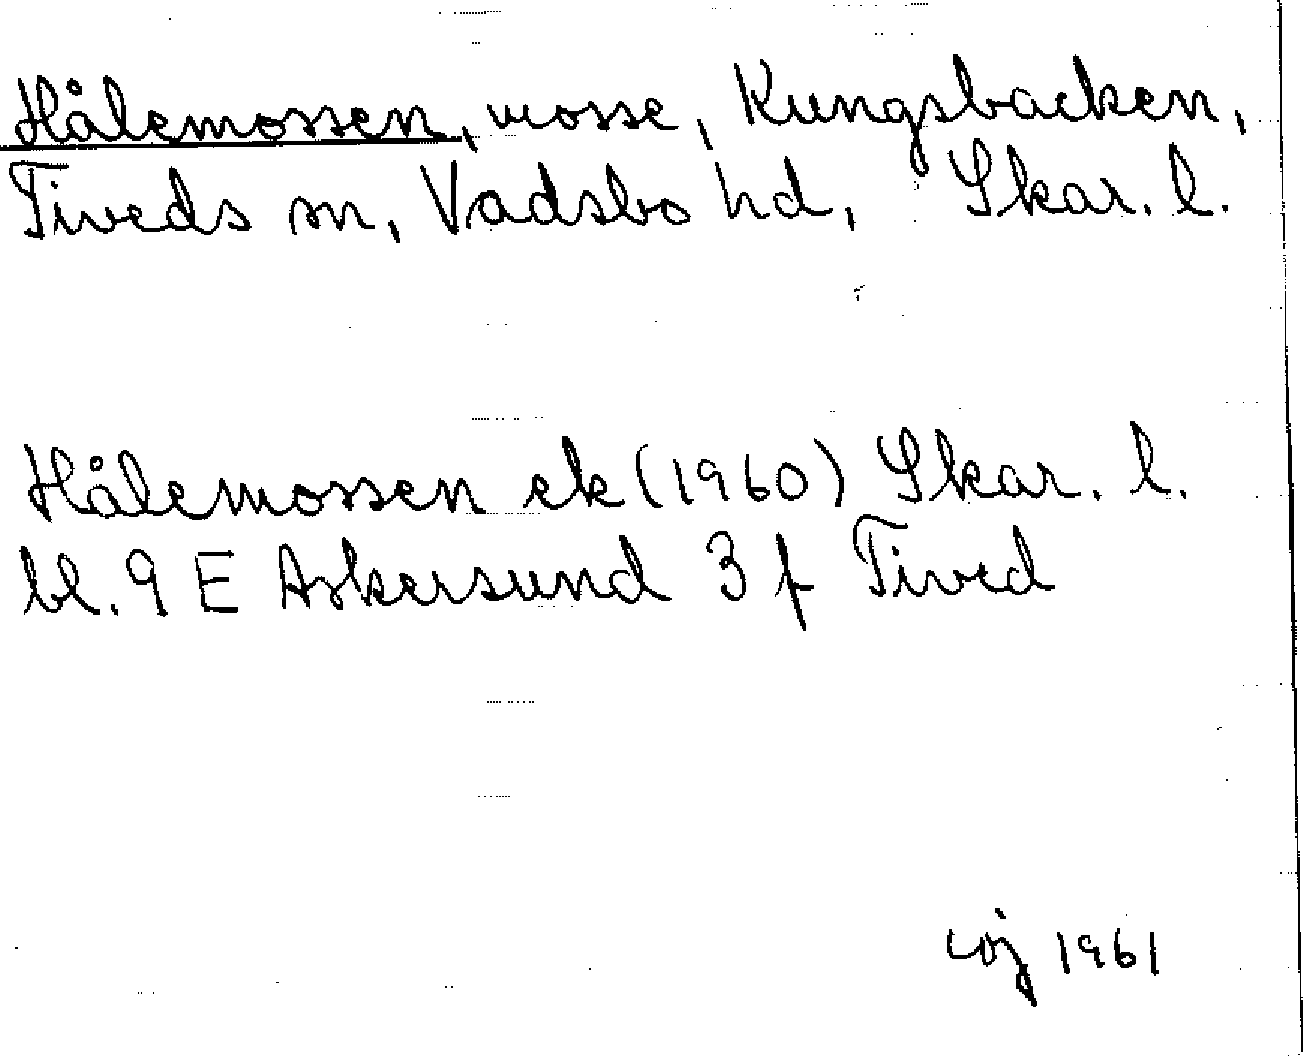 Hålemossen, mosse, Kungsbacken,
Tiveds sn, Vadsbo hd, Skar. l.
Hålemossen ek (1960) Skar. l.
bl. 9 E Askersund 3 f Tived
1961